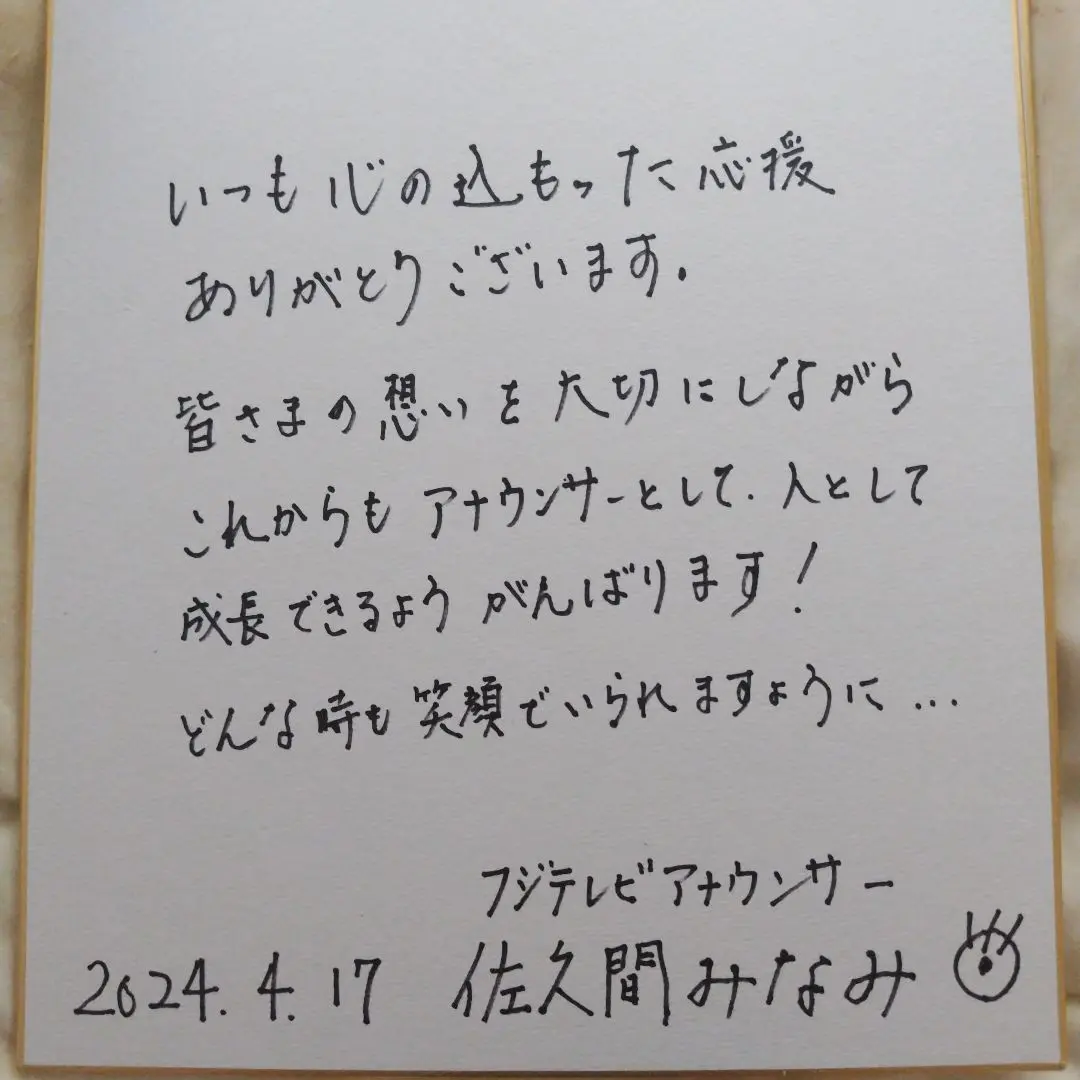 いつも心の込もった応援
ありがとうございます.
皆さまの想いを大切にしながら
これからもアナウンサーとして.人として
成長できるようがんばります!
どんな時も笑顔でいられますように...
フジテレビアナウンサー
2024.4.17 佐久間みなみ